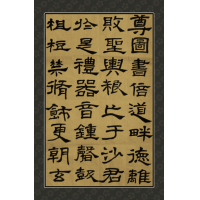 尊圖書倍道畔德離
敗聖輿粮亡于沙君
於是禮器音鍾磬鼓
柤梪禁脩飾更朝玄